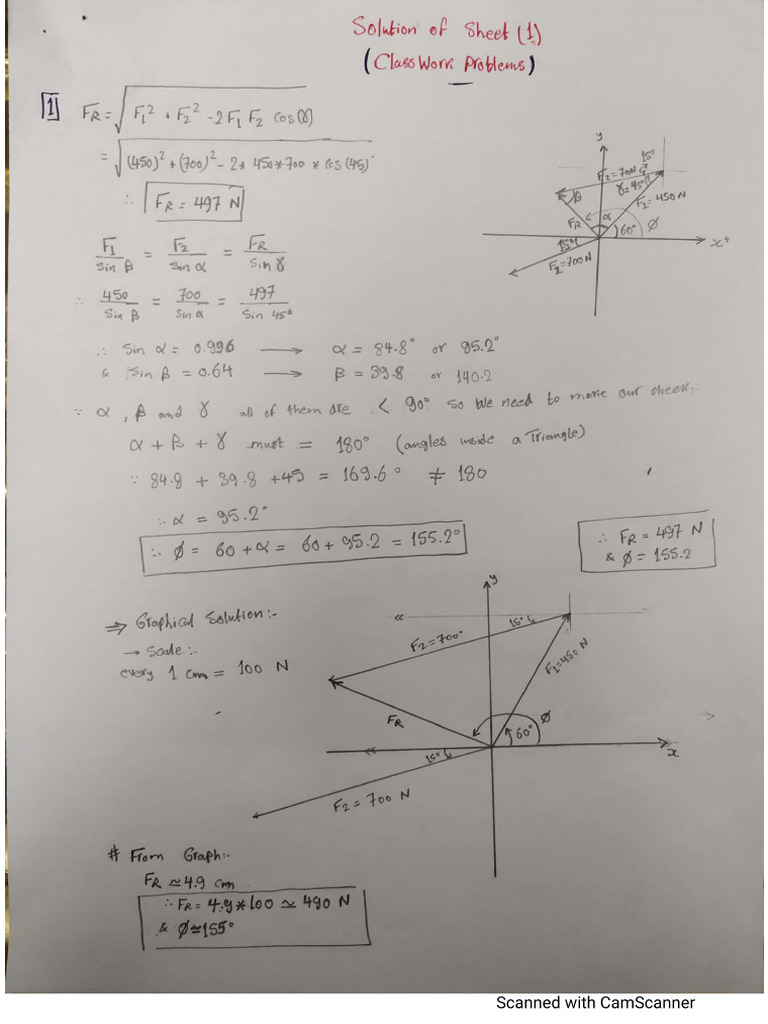 Solution of Sheet (1)
(Class Work Problems)
1 FR = √F1² + F2² - 2 F1 F2 cos(γ)
= √(450)² + (700)² - 2 * 450 * 700 * cos (45)
∴ FR = 497 N
F1/Sin β = F2/Sin α = FR/Sin γ
∴ 450/Sin β = 700/Sin α = 497/Sin 45°
y
15°
F2 = 700N
γ = 45°
β
F1 = 450N
FR
α
60°
Ø
15°
x+
F2 = 700N
∴ Sin α = 0.996 → α = 84.8° or 95.2°
& Sin β = 0.64 → β = 39.8 or 140.2
∵ α, β and γ all of them are < 90° so we need to make our check:-
α + β + γ must = 180° (angles inside a Triangle)
∵ 84.8 + 39.8 + 45 = 169.6° ≠ 180
∴ α = 95.2°
∴ Ø = 60 + α = 60 + 95.2 = 155.2°
∴ FR = 497 N
& Ø = 155.2
⇒ Graphical Solution:-
→ Scale:-
every 1 cm = 100 N
y
15°
F2 = 700°
F1 = 450 N
FR
Ø
60°
15°
x
F2 = 700 N
# From Graph:-
FR ≃ 4.9 cm
∴ FR = 4.9 * 100 ≃ 490 N
& Ø ≃ 155°
Scanned with CamScanner